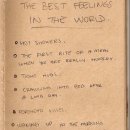 THE BEST FEELINGS
IN THE WORLD.
HOT SHOWERS.
THE FIRST BITE OF A MEAL
WHEN YOU ARE REALLY HUNGRY
TIGHT HUGS.
CRAWLING INTO BED AFTER
A LONG DAY
FOREHEAD KISSES.
WAKING UP TO THE MORNING